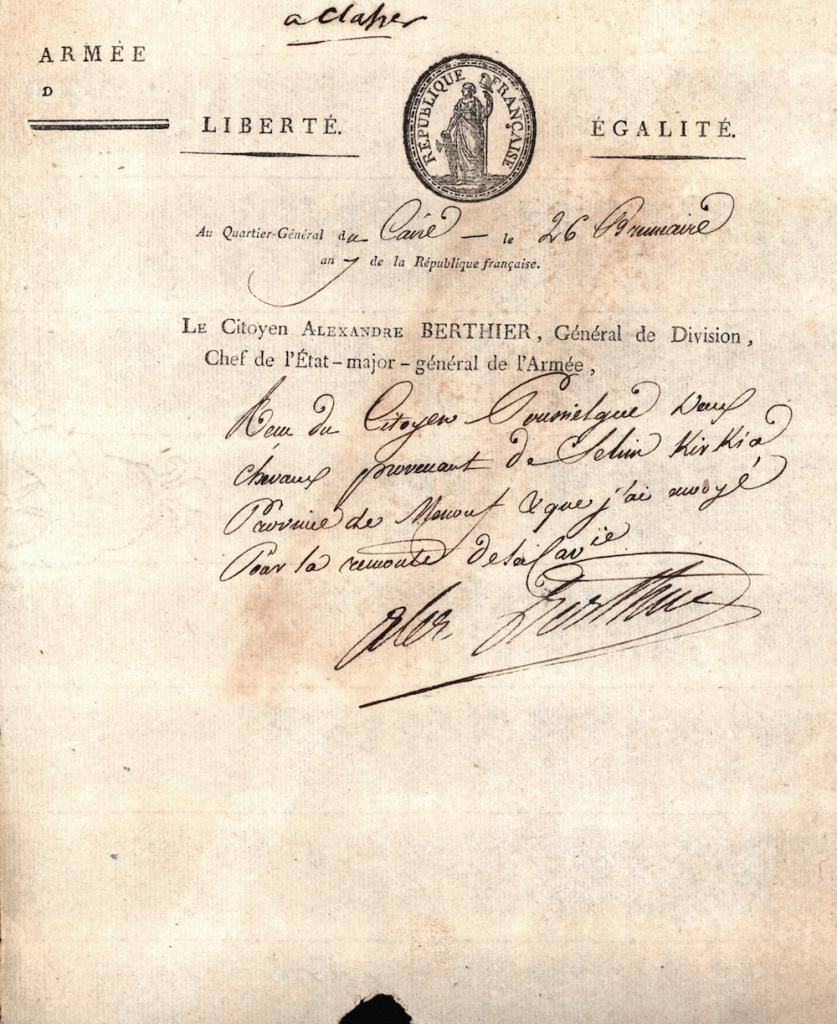 a classer
ARMÉE
D
LIBERTÉ.
RÉPUBLIQUE FRANÇAISE
ÉGALITÉ.
Au Quartier-Général du Caire — le 26 Brumaire
an 7 de la République française.
LE Citoyen ALEXANDRE BERTHIER, Général de Division,
Chef de l'État-major-général de l'Armée,
Recu du Citoyen Poussielgue deux
chevaux provenant de Selim Kir Kia
Province de Menouf & que j'ai envoyé
Pour la remonte de la Cavie
Alex. Berthier